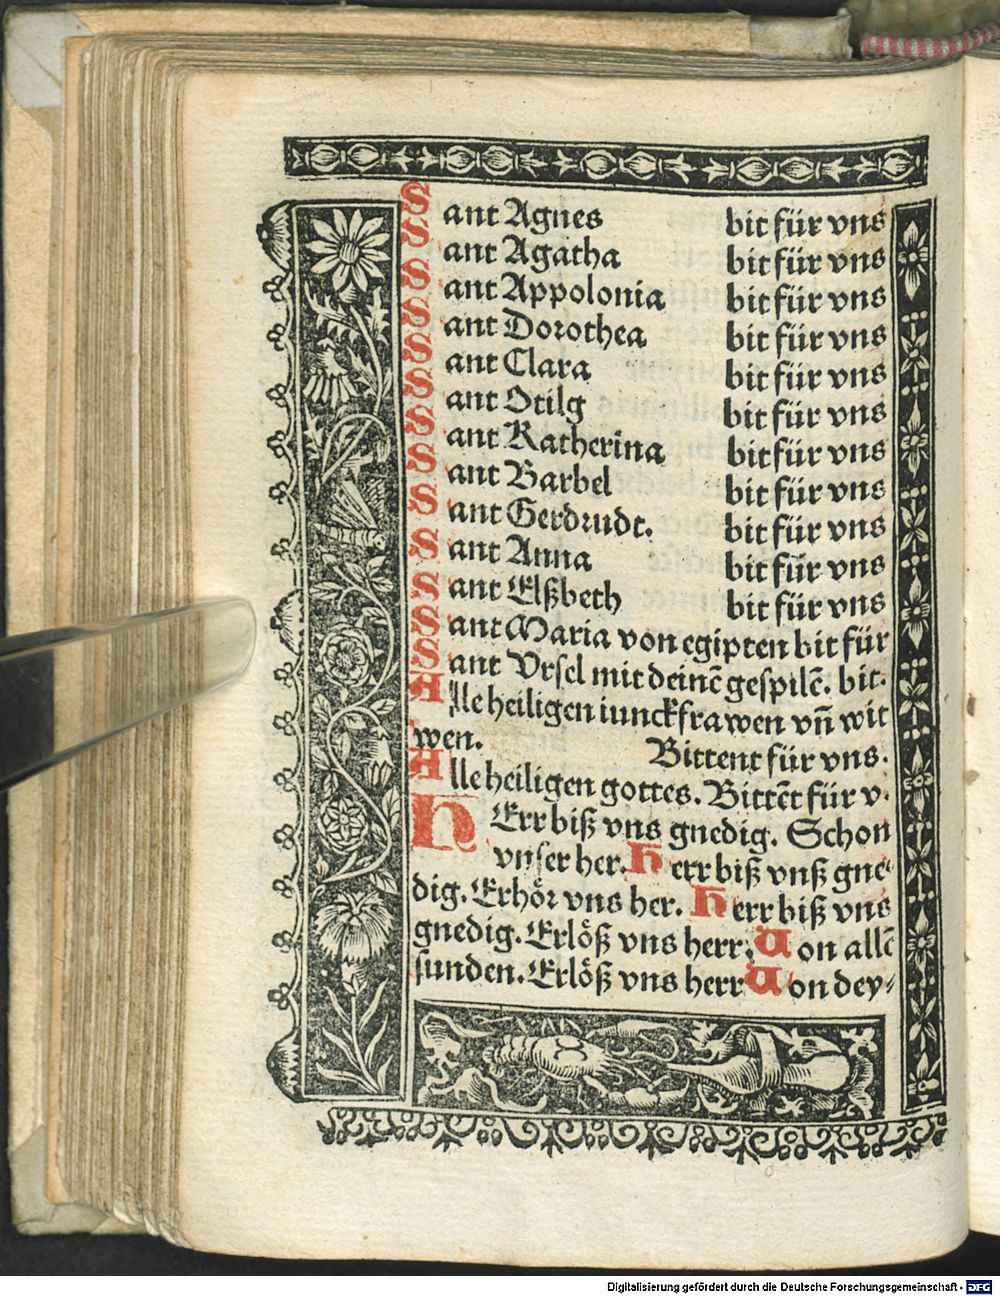 Sant Agnes bit für vns
Sant Agatha bit für vns
Sant Appolonia bit für vns
Sant Dorothea bit für vns
Sant Clara bit für vns
Sant Otilg bit für vns
Sant Katherina bit für vns
Sant Barbel bit für vns
Sant Gerdrudt. bit für vns
Sant Anna bit für vns
Sant Elßbeth bit für vns
Sant Maria von egipten bit für
Sant Vrsel mit deinē gespilē. bit.
Alle heiligen iunckfrawen vn̄ wit
wen. Bittent für vns.
Alle heiligen gottes. Bittēt für v.
HErr biß vns gnedig. Schon
vnser her. Herr biß vnß gne⸗
dig. Erhör vns her. Herr biß vns
gnedig. Erlöß vns herr. Von allē
sunden. Erlöß vns herr Von dey⸗
Digitalisierung gefördert durch die Deutsche Forschungsgemeinschaft - DFG